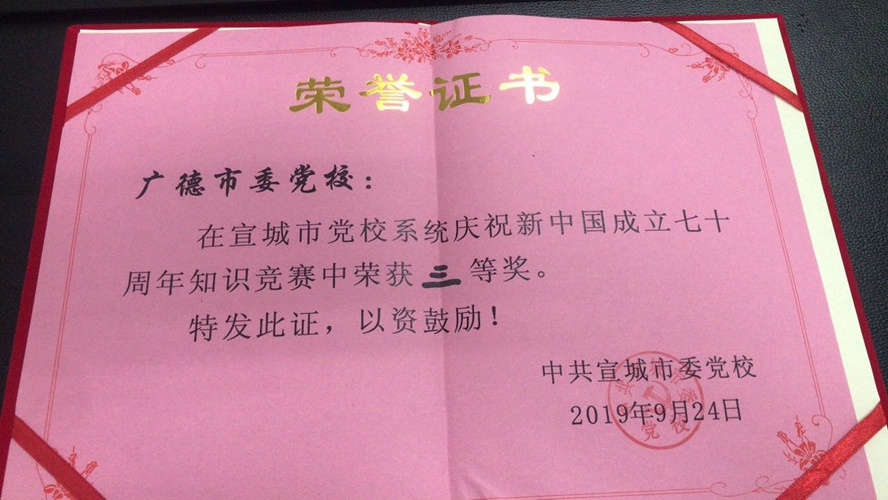 荣誉证书
广德市委党校：
在宣城市党校系统庆祝新中国成立七十
周年知识竞赛中荣获三等奖。
特发此证，以资鼓励！
中共宣城市委党校
2019年9月24日